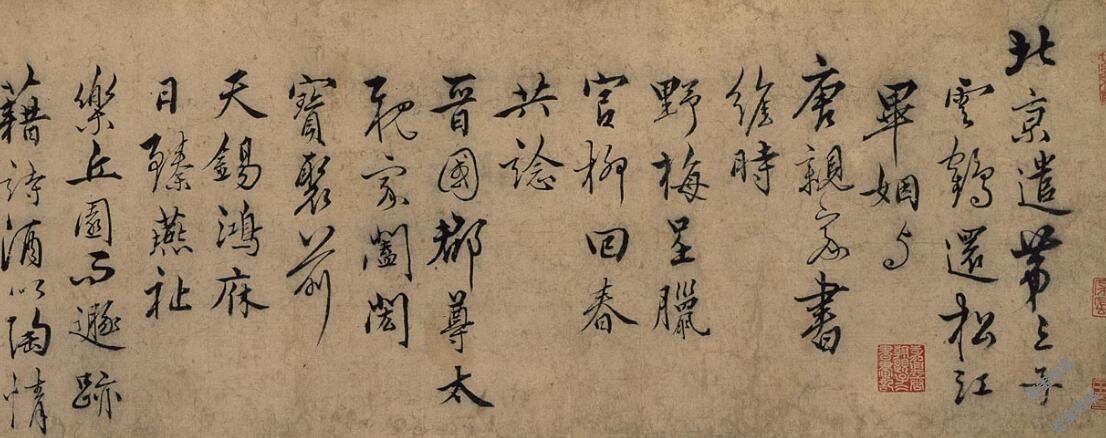 北京遣第三子
雲鶴還松江
畢姻与
唐親家書
維時
野梅呈臘
官柳回春
共諗
晉國郡尊太
親家闔閤
寶眷前
天錫鴻庥
日臻燕祉
樂丘園而遯跡
藉詩酒以陶情